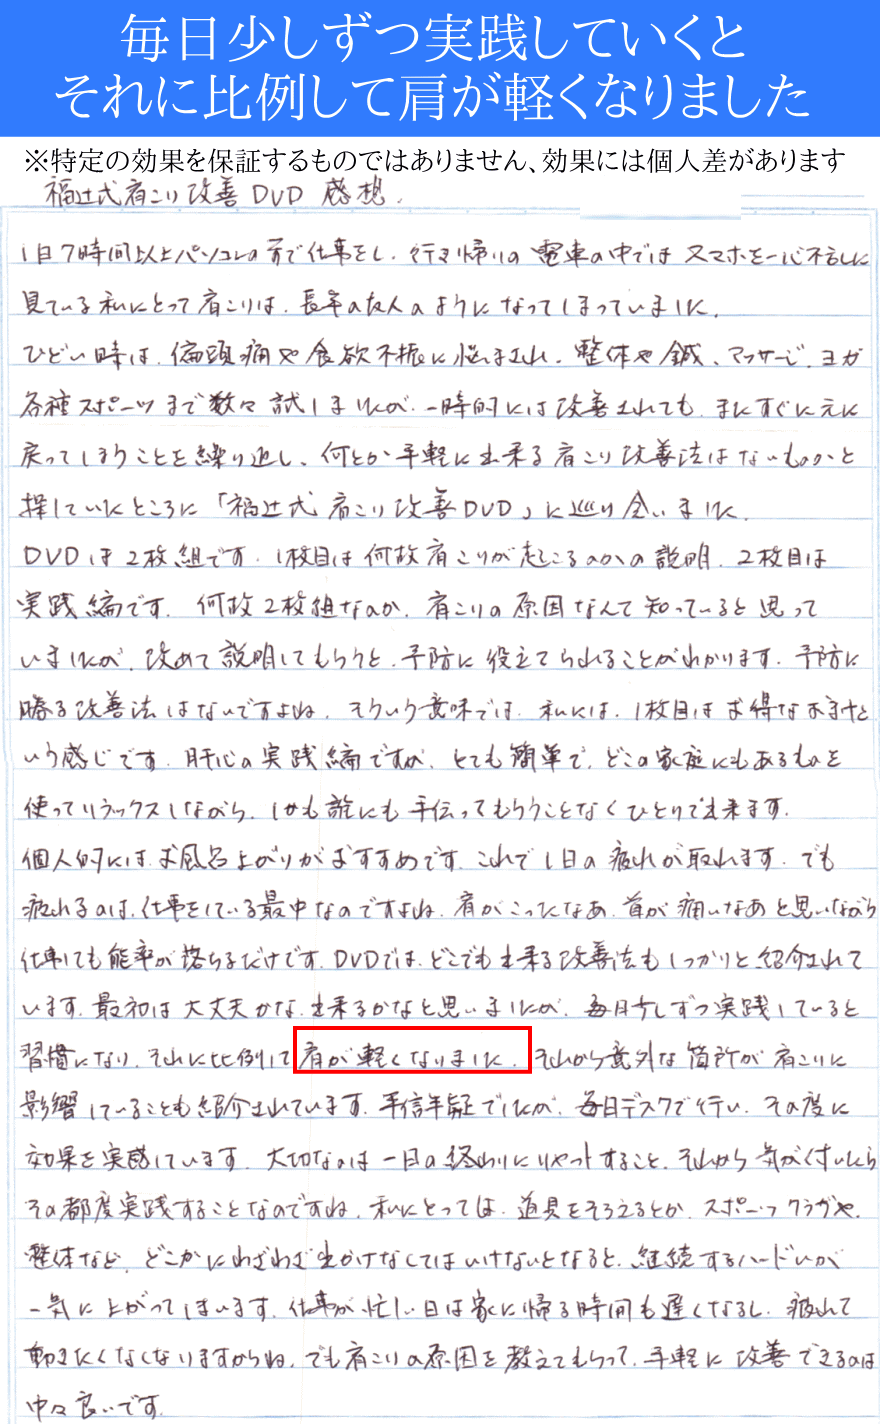 毎日少しずつ実践していくと
それに比例して肩が軽くなりました
※特定の効果を保証するものではありません、効果には個人差があります
福辻式肩こり改善DVD 感想.
1日7時間以上パソコンの前で仕事をし、行き帰りの電車の中ではスマホを一心不乱に
見ている私にとって肩こりは、長年の友人のようになってしまっていました。
ひどい時は、偏頭痛や食欲不振に悩まされ、整体や鍼、マッサージ、ヨガ
各種スポーツまで数々試しましたが、一時的には改善されても、またすぐに元に
戻ってしまうことを繰り返し、何とか手軽に出来る肩こり改善法はないものかと
探していたところに「福辻式肩こり改善DVD」に巡り会いました。
DVDは2枚組です。1枚目は何故肩こりが起こるのかの説明、2枚目は
実践編です。何故2枚組なのか、肩こりの原因なんて知っていると思って
いましたが、改めて説明してもらうと、予防に役立てられることがわかります。予防に
勝る改善法はないですよね。そういう意味では、私には、1枚目はお得なおまけと
いう感じです。肝心の実践編ですが、とても簡単で、どこの家庭にもあるものを
使ってリラックスしながら、しかも誰にも手伝ってもらうことなくひとりで出来ます。
個人的にはお風呂上がりがおすすめです。これで1日の疲れが取れます。でも
疲れるのは、仕事をしている最中なのですよね。肩がこったなあ、首が痛いなあと思いながら
仕事しても能率が落ちるだけです。DVDでは、どこでも出来る改善法もしっかりと紹介されて
います。最初は大丈夫かな、出来るかなと思いましたが、毎日少しずつ実践していると
習慣になり、それに比例して肩が軽くなりました。それから意外な箇所が肩こりに
影響していることも紹介されています。半信半疑でしたが、毎日デスクで行い、その度に
効果を実感しています。大切なのは一日の終わりにリセットすること、それから気が付いたら
その都度実践することなのですね。私にとっては、道具をそろえるとか、スポーツクラブや、
整体など、どこかにわざわざ出かけなくてはいけないとなると、継続するハードルが
一気に上がってしまいます。仕事が忙しい日は家に帰る時間も遅くなるし、疲れて
動きたくなくなりますからね。でも肩こりの原因を教えてもらって、手軽に改善できるのは
中々良いです。